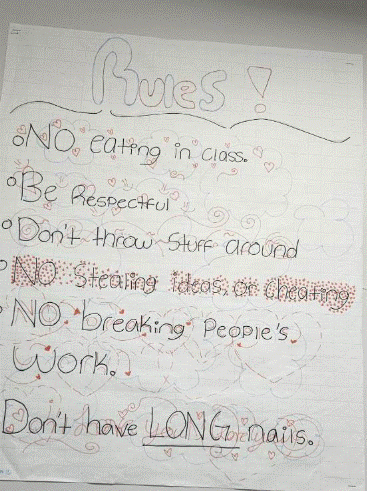 Rules!
NO eating in class.
Be Respectful
Don't throw Stuff around
NO Stealing ideas or Cheating
NO breaking People's
Work.
Don't have LONG nails.